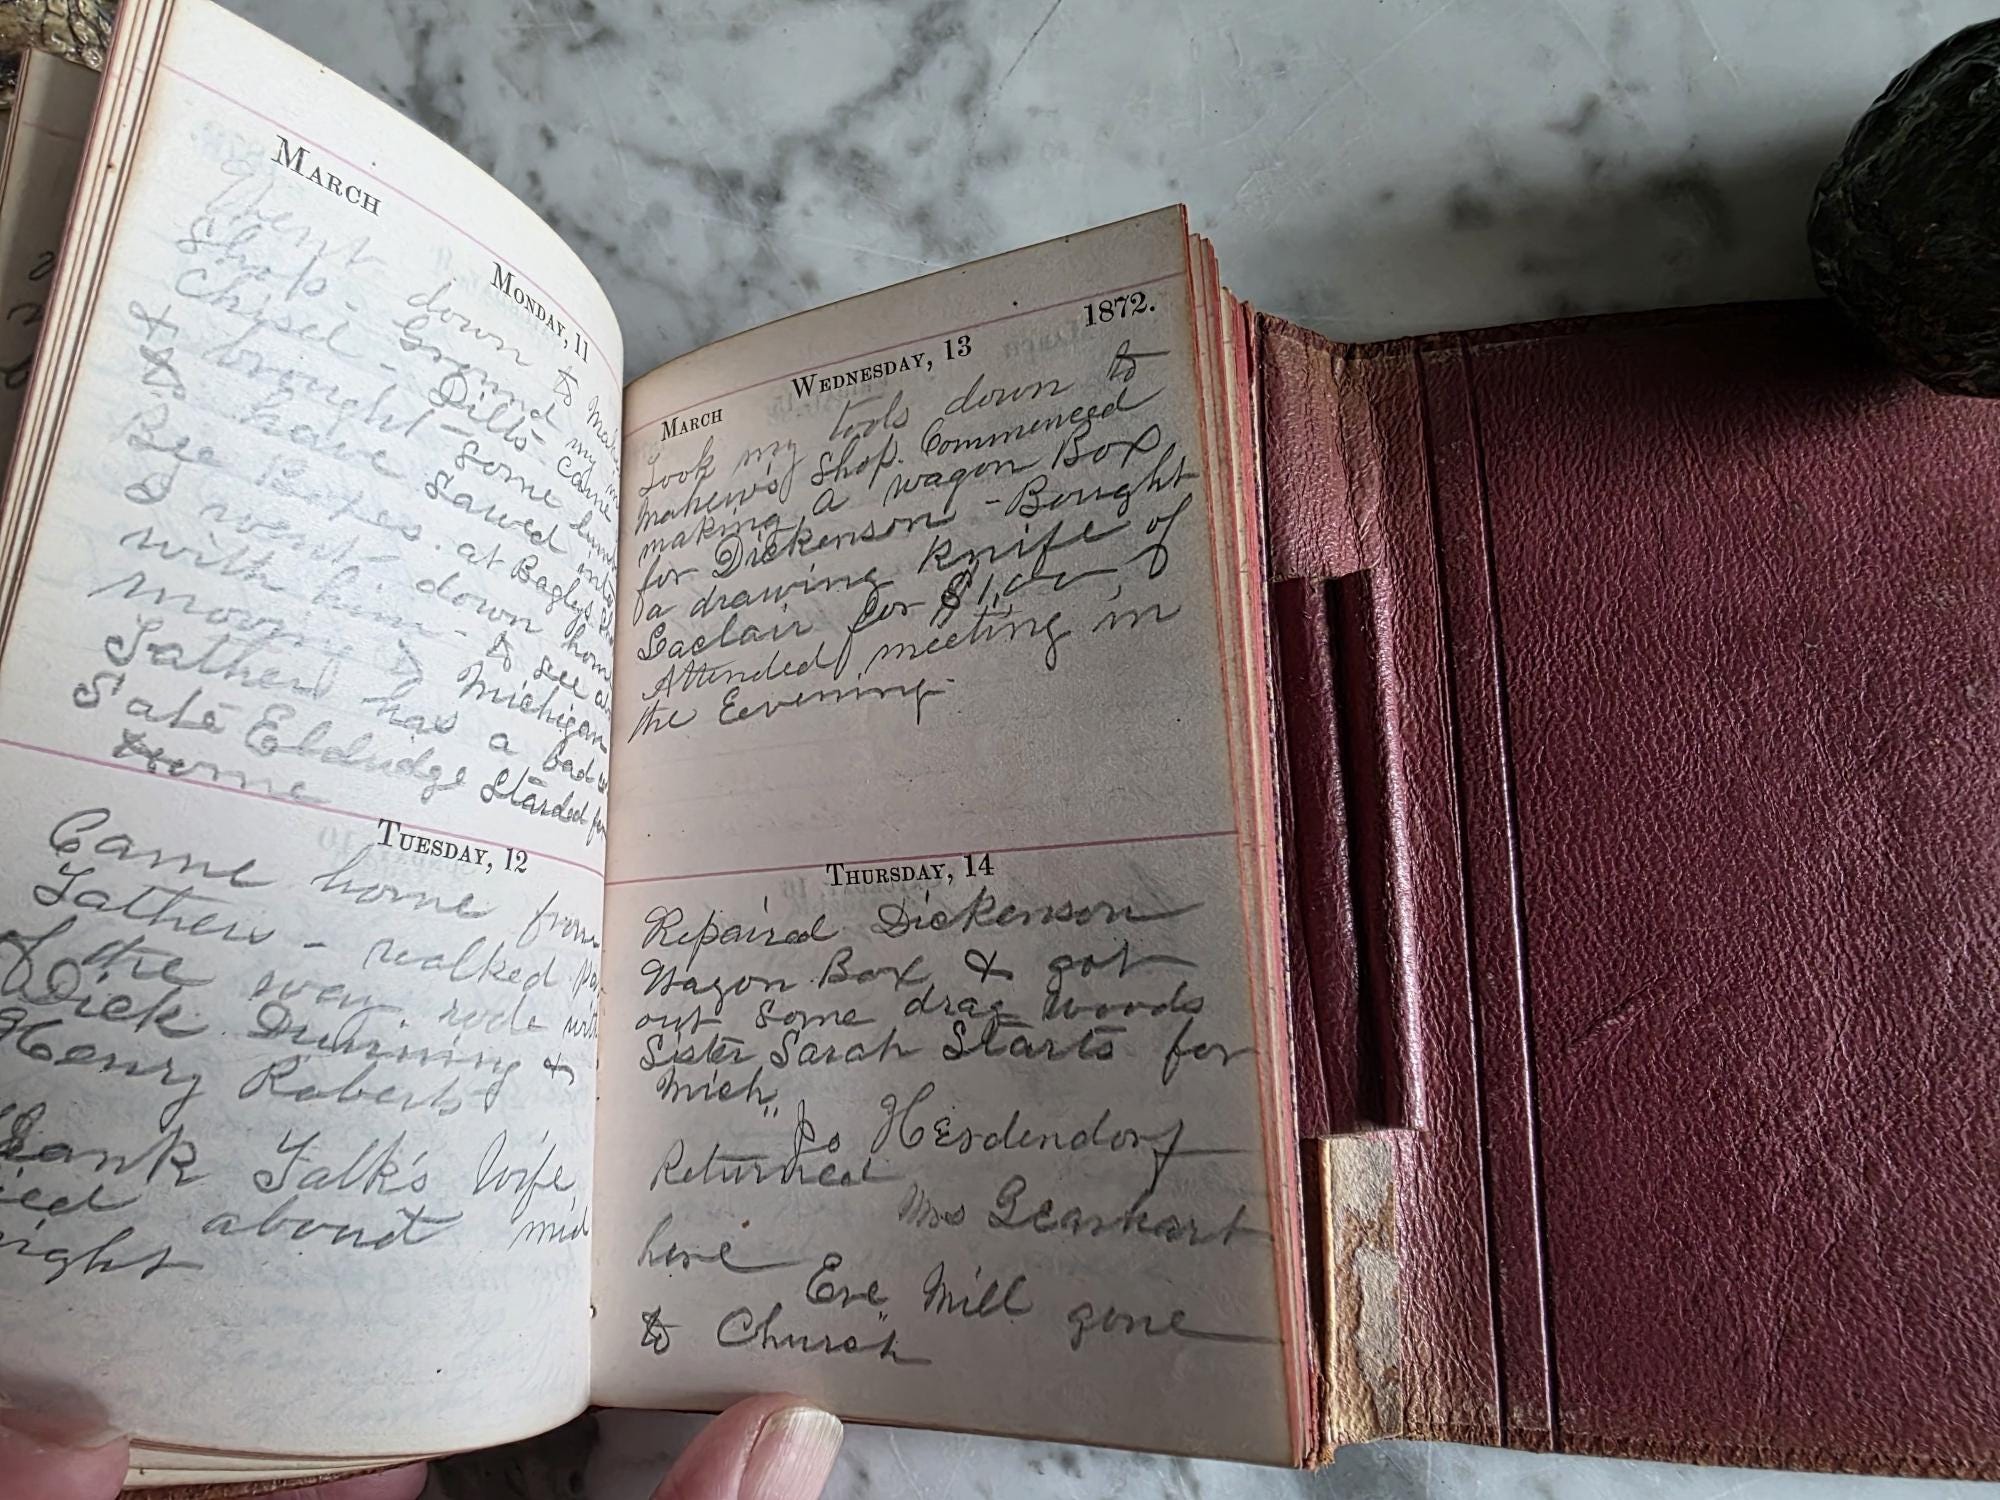 MARCH
MONDAY, 11
Went down to
Shop - Ground my
Chisel - Dills came
& brought some
to have Sawed into
Bee Boxes. at Baglys
I went down home
with him - to see
moving to Michigan
Father has a bad
State Eldridge Started for
Home
TUESDAY, 12
Came home from
Fathers - walked
of the way. rode with
Dick Dunning &
Henry Roberts
Falk's Wife,
about mid
night
1872.
WEDNESDAY, 13
MARCH
Took my tools down to
Mahews Shop. Commenced
making a wagon Box
for Dickenson - Bought
a drawing knife of
Laclair for $1,00
Attended meeting in
the Eevening.
THURSDAY, 14
Repaired Dickenson
Wagon Box & got
out Some drag woods
Sister Sarah Starts for
Mich"
Jo Hesdendorf
Returned
Mrs Gearhart
here
Eve" Mill gone
to Church